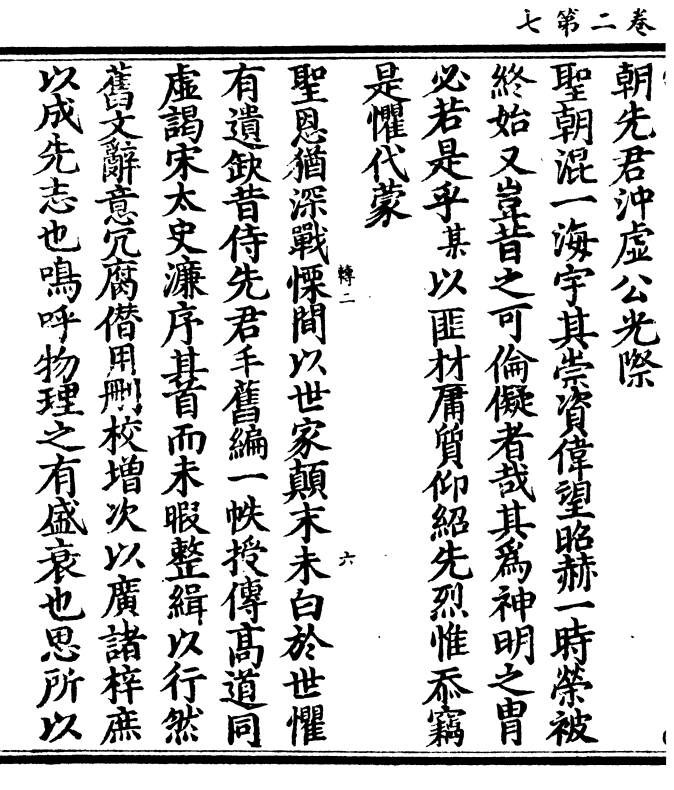 卷二第七
朝先君沖虛公光際
聖朝混一海宇其崇資偉望昭赫一時榮被
終始又豈昔之可倫儗者哉其爲神明之胄
必若是乎某以匪材庸質仰紹先烈惟忝竊
是懼代蒙
聖恩猶深戰慄間以世家顛末未白於世懼
轉二
六
有遺欽昔侍先君手舊編一帙授傳高道同
虛謁宋太史濂序其首而未暇整緝以行然
舊文辭意冗腐僣用刪校增次以廣諸梓庶
以成先志也鳴呼物理之有盛衰也思所以